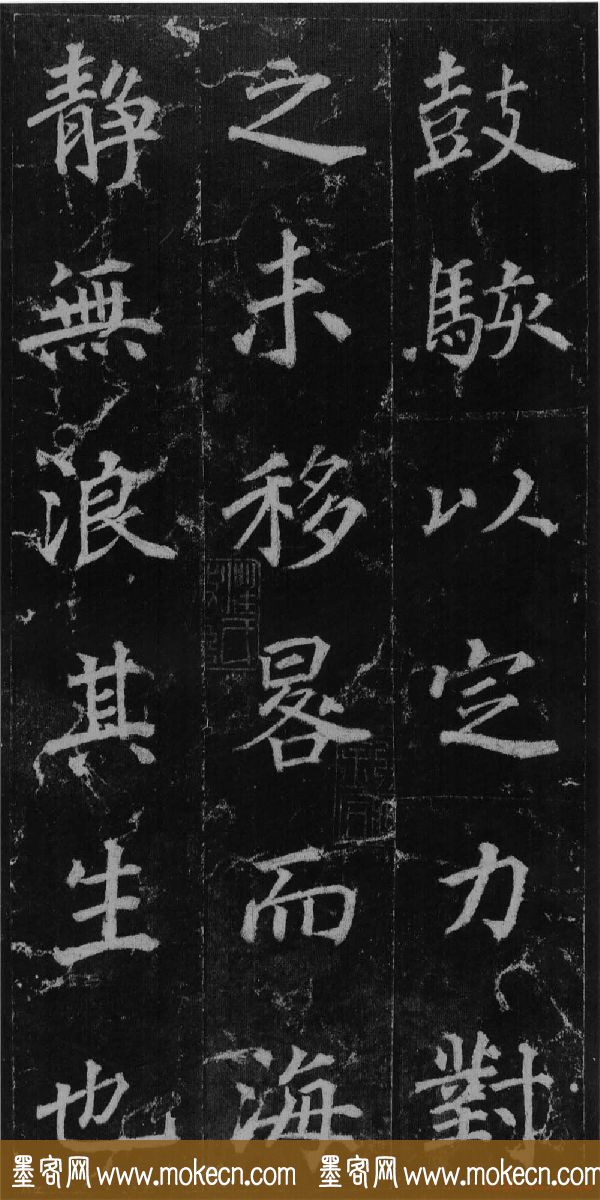 鼓駭以定力對
之未移晷而海
靜無浪其生也
墨客网 www.mokecn.com 墨客网 www.mokecn.com